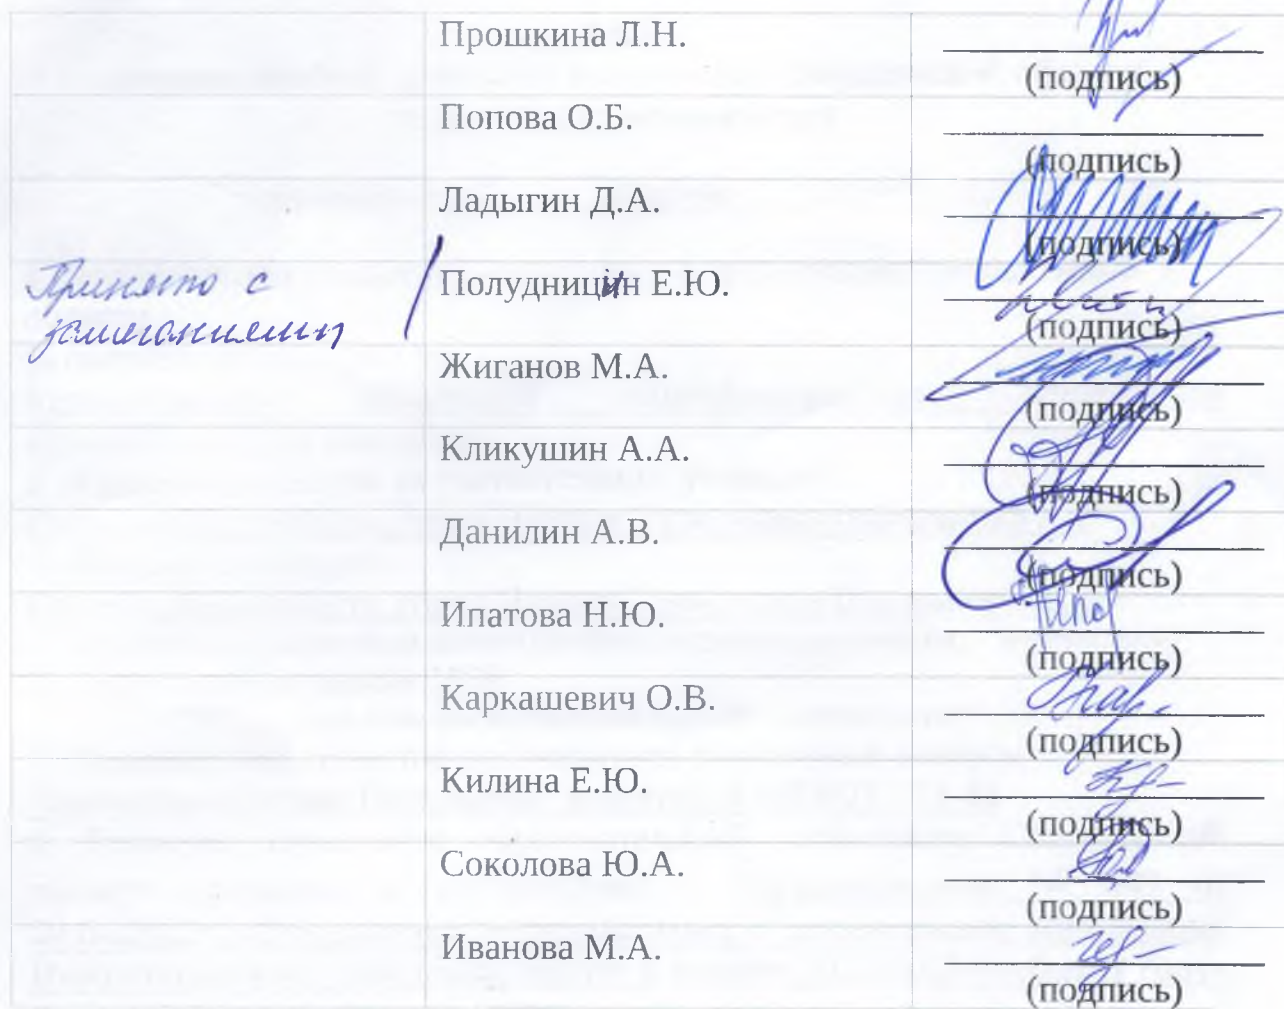 Прошкина Л.Н.
(подпись)
Попова О.Б.
(подпись)
Ладыгин Д.А.
(подпись)
Принято с
замечаниями
Полудницин Е.Ю.
(подпись)
Жиганов М.А.
(подпись)
Кликушин А.А.
(подпись)
Данилин А.В.
(подпись)
Ипатова Н.Ю.
(подпись)
Каркашевич О.В.
(подпись)
Килина Е.Ю.
(подпись)
Соколова Ю.А.
(подпись)
Иванова М.А.
(подпись)